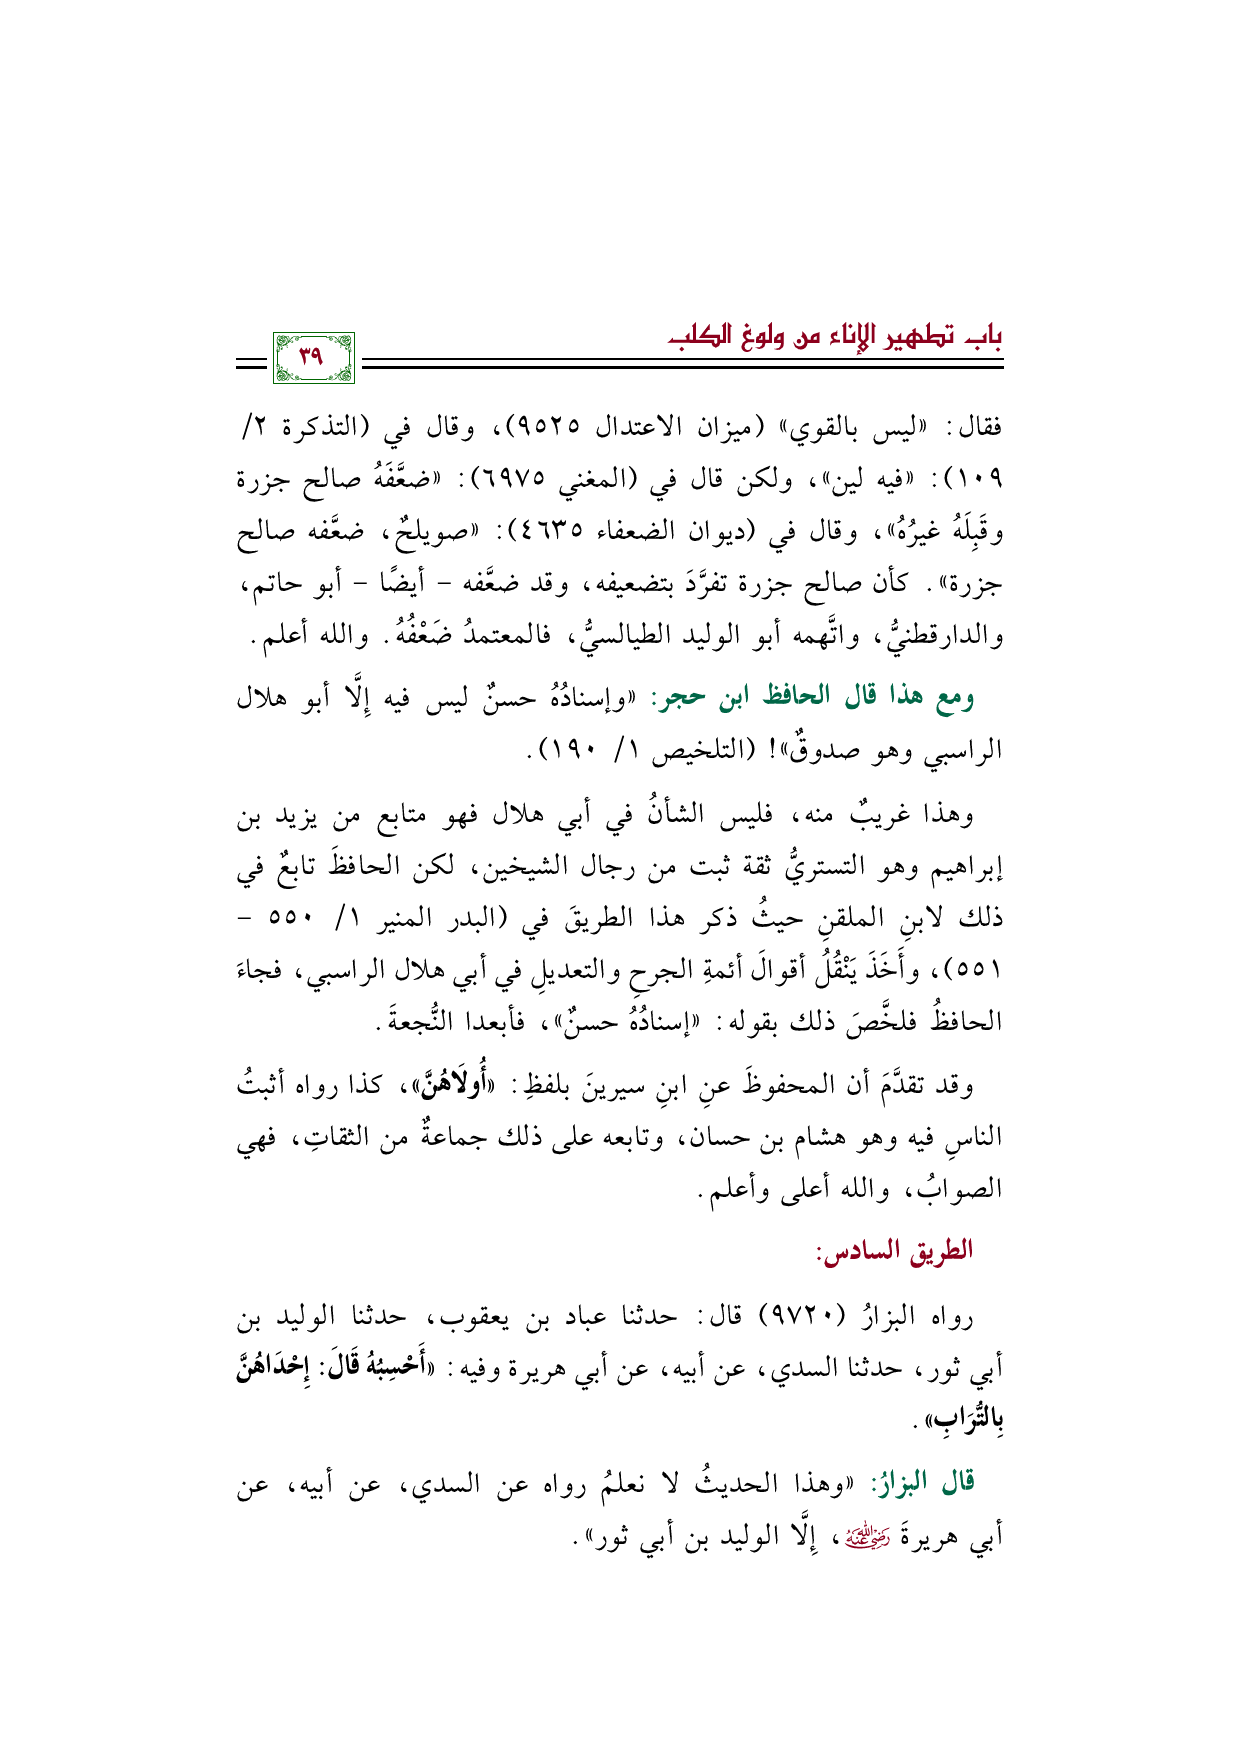 باب تطهير الإناء من ولوغ الكلب
٣٩
فقال: «ليس بالقوي» (ميزان الاعتدال ٩٥٢٥)، وقال في (التذكرة ٢/
١٠٩): «فيه لين»، ولكن قال في (المغني ٦٩٧٥): «ضعَّفَهُ صالح جزرة
وقَبِلَهُ غيرُهُ»، وقال في (ديوان الضعفاء ٤٦٣٥): «صويلحٌ، ضعَّفه صالح
جزرة». كأن صالح جزرة تفرَّدَ بتضعيفه، وقد ضعَّفه – أيضًا – أبو حاتم،
والدارقطنيُّ، واتَّهمه أبو الوليد الطيالسيُّ، فالمعتمدُ ضَعْفُهُ. والله أعلم.
ومع هذا قال الحافظ ابن حجر: «وإسنادُهُ حسنٌ ليس فيه إِلَّا أبو هلال
الراسبي وهو صدوقٌ»! (التلخيص ١/ ١٩٠).
وهذا غريبٌ منه، فليس الشأنُ في أبي هلال فهو متابع من يزيد بن
إبراهيم وهو التستريُّ ثقة ثبت من رجال الشيخين، لكن الحافظَ تابعٌ في
ذلك لابنِ الملقنِ حيثُ ذكر هذا الطريقَ في (البدر المنير ١/ ٥٥٠ –
٥٥١)، وأَخَذَ يَنْقُلُ أقوالَ أئمةِ الجرحِ والتعديلِ في أبي هلال الراسبي، فجاءَ
الحافظُ فلخَّصَ ذلك بقوله: «إسنادُهُ حسنٌ»، فأبعدا النُّجعةَ.
وقد تقدَّمَ أن المحفوظَ عنِ ابنِ سيرينَ بلفظِ: «أُولَاهُنَّ»، كذا رواه أثبتُ
الناسِ فيه وهو هشام بن حسان، وتابعه على ذلك جماعةٌ من الثقاتِ، فهي
الصوابُ، والله أعلى وأعلم.
الطريق السادس:
رواه البزارُ (٩٧٢٠) قال: حدثنا عباد بن يعقوب، حدثنا الوليد بن
أبي ثور، حدثنا السدي، عن أبيه، عن أبي هريرة وفيه: «أَحْسِبُهُ قَالَ: إِحْدَاهُنَّ
بِالتُّرَابِ».
قال البزارُ: «وهذا الحديثُ لا نعلمُ رواه عن السدي، عن أبيه، عن
أبي هريرةَ رضي الله عنه، إِلَّا الوليد بن أبي ثور».